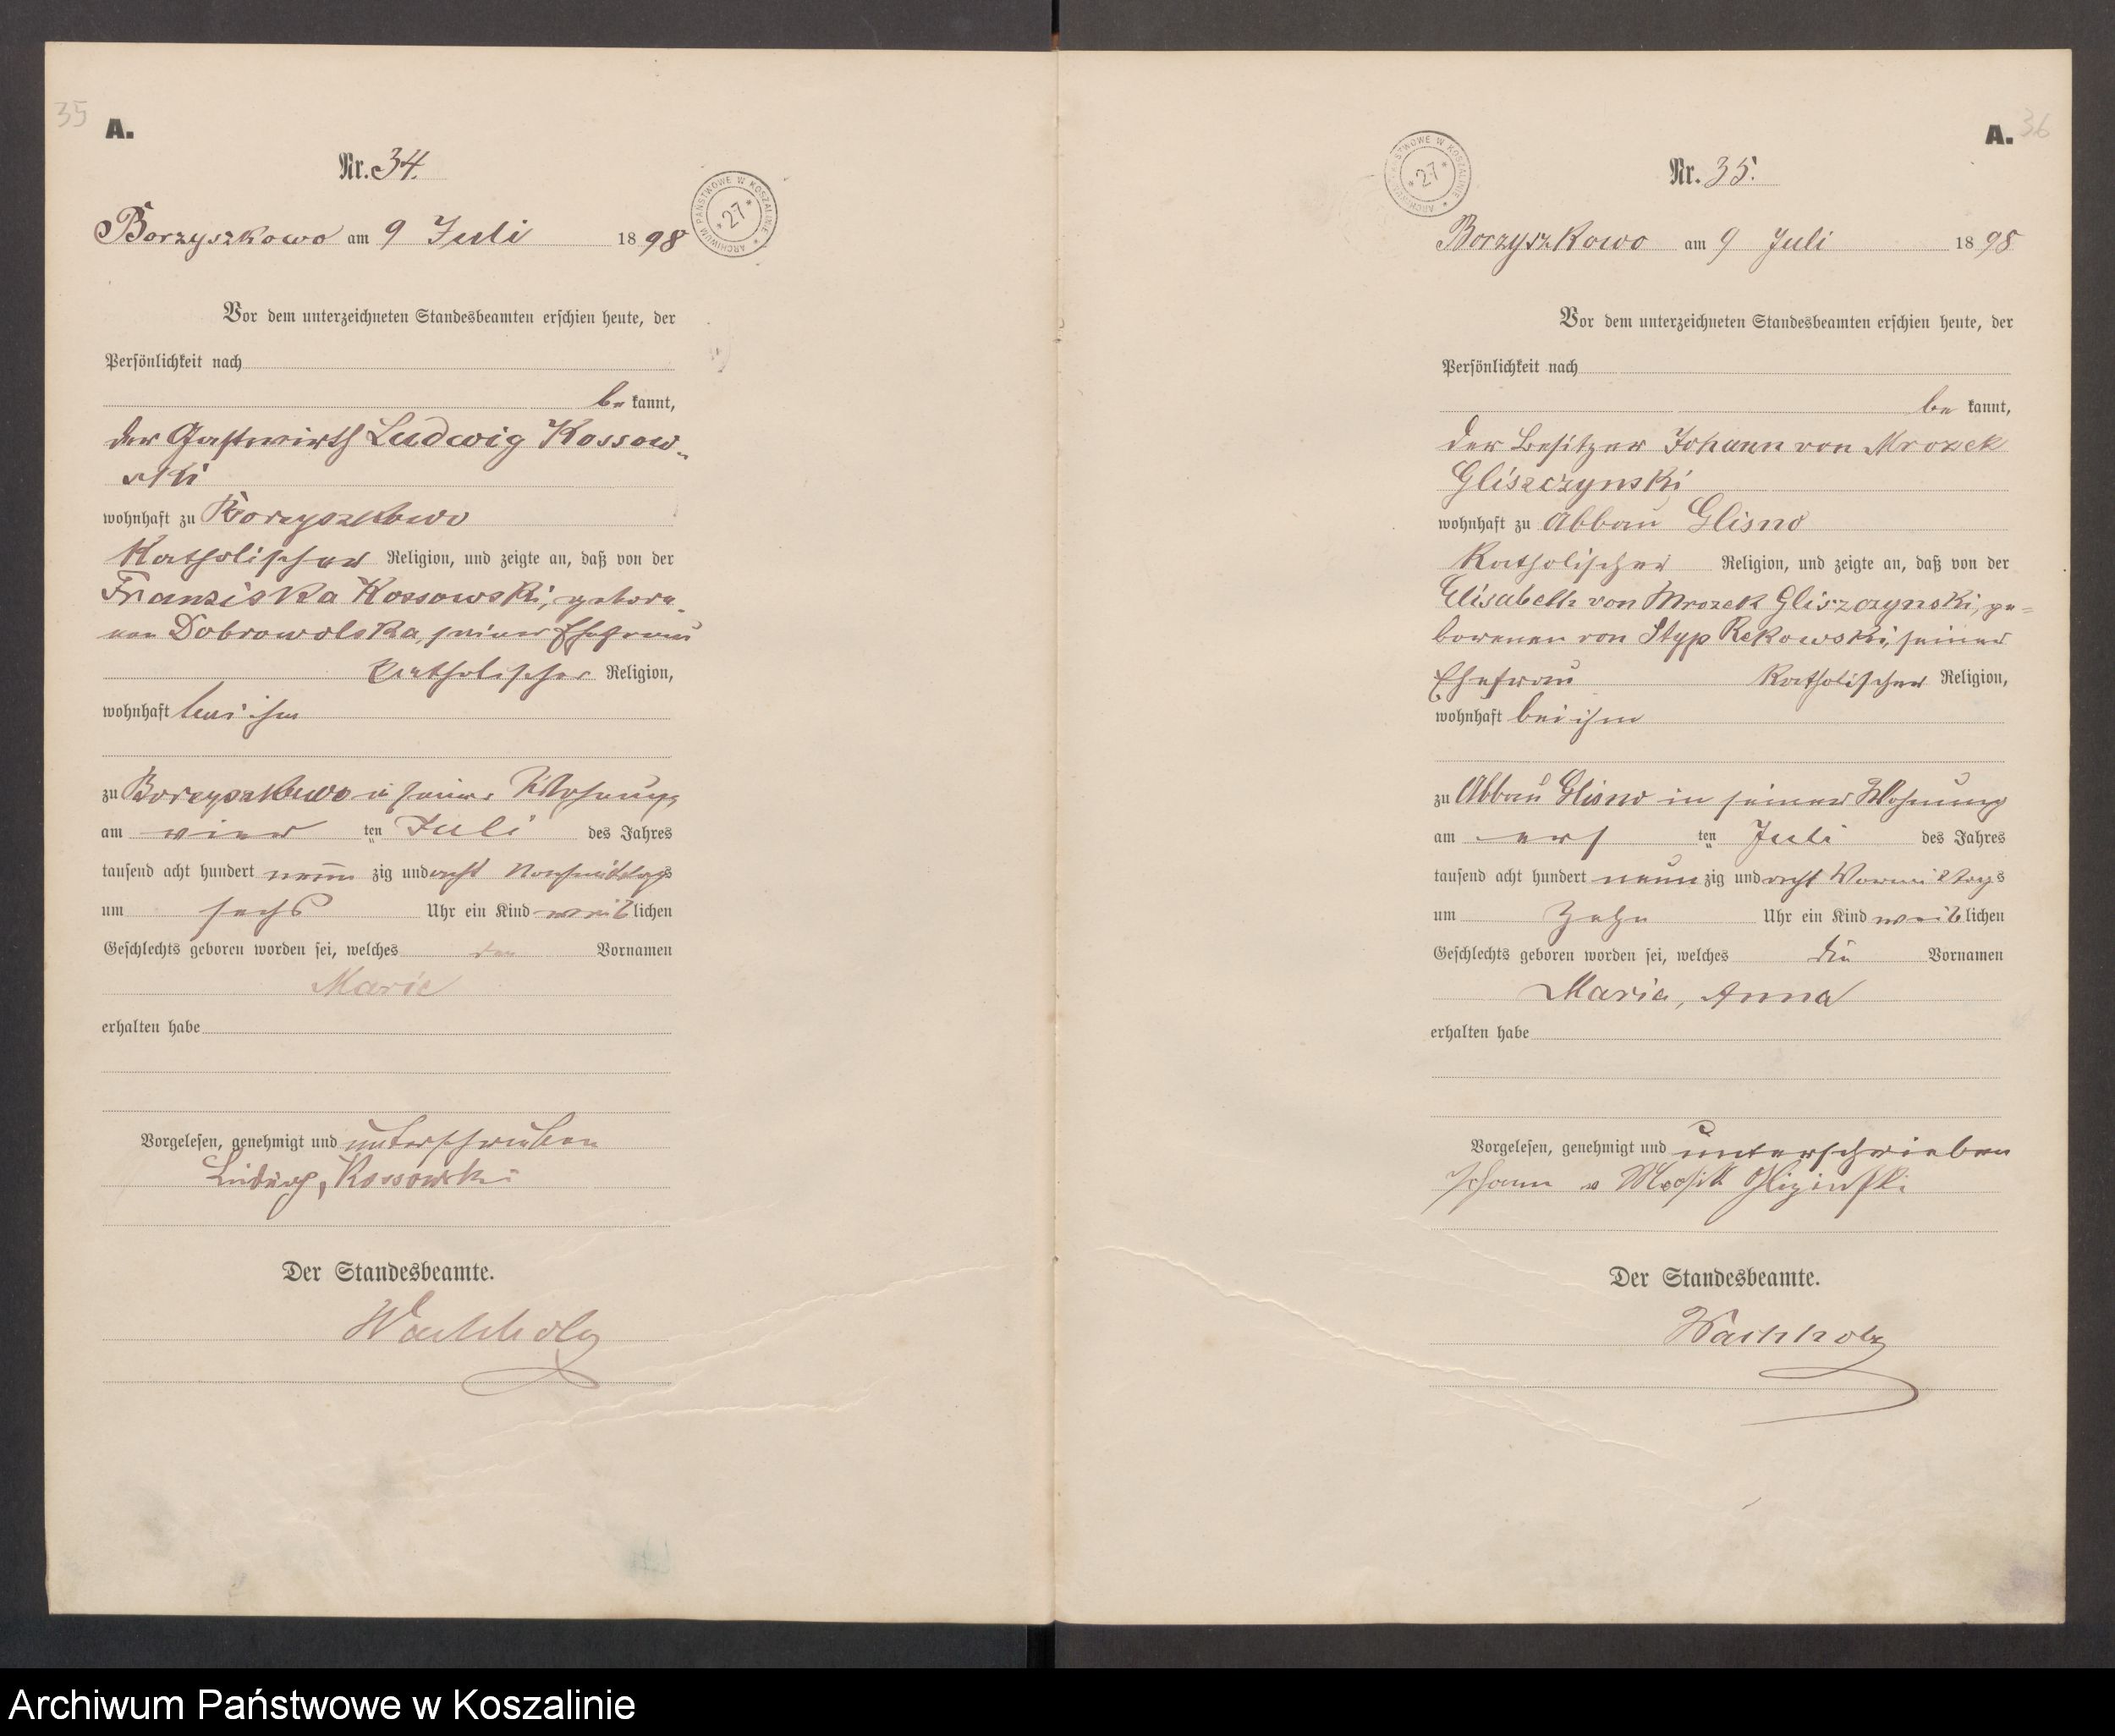 35
A.
Nr. 34.
Borzyszkowo am 9 Juli 1898
ARCHIWUM PAŃSTWOWE W KOSZALINIE * 27 *
Vor dem unterzeichneten Standesbeamten erschien heute, der
Persönlichkeit nach
be kannt,
der Gastwirth Ludwig Kossow-
ski
wohnhaft zu Borzyszkowo
katholischer Religion, und zeigte an, daß von der
Franziska Kossowski, gebore-
nen Dobrowolska, seiner Ehefrau
katholischer Religion,
wohnhaft bei ihm
zu Borzyszkowo in seiner Wohnung
am vier ten Juli des Jahres
tausend acht hundert neun zig und acht Nachmittags
um sechs Uhr ein Kind weiblichen
Geschlechts geboren worden sei, welches den Vornamen
Marie
erhalten habe
Vorgelesen, genehmigt und unterschrieben
Ludwig, Kossowski
Der Standesbeamte.
Wachholz
A.
36
ARCHIWUM PAŃSTWOWE W KOSZALINIE * 27 *
Nr. 35.
Borzyszkowo am 9 Juli 1898
Vor dem unterzeichneten Standesbeamten erschien heute, der
Persönlichkeit nach
be kannt,
der Besitzer Johann von Mrozek
Gliszczynski
wohnhaft zu Abbau Glisno
katholischer Religion, und zeigte an, daß von der
Elisabeth von Mrozek Gliszczynski, ge-
borenen von Styp Rekowski, seiner
Ehefrau katholischer Religion,
wohnhaft bei ihm
zu Abbau Glisno in seiner Wohnung
am ers ten Juli des Jahres
tausend acht hundert neun zig und acht Vormittags
um zehn Uhr ein Kind weiblichen
Geschlechts geboren worden sei, welches die Vornamen
Maria, Anna
erhalten habe
Vorgelesen, genehmigt und unterschrieben
Johann v
Der Standesbeamte.
Wachholz
Archiwum Państwowe w Koszalinie